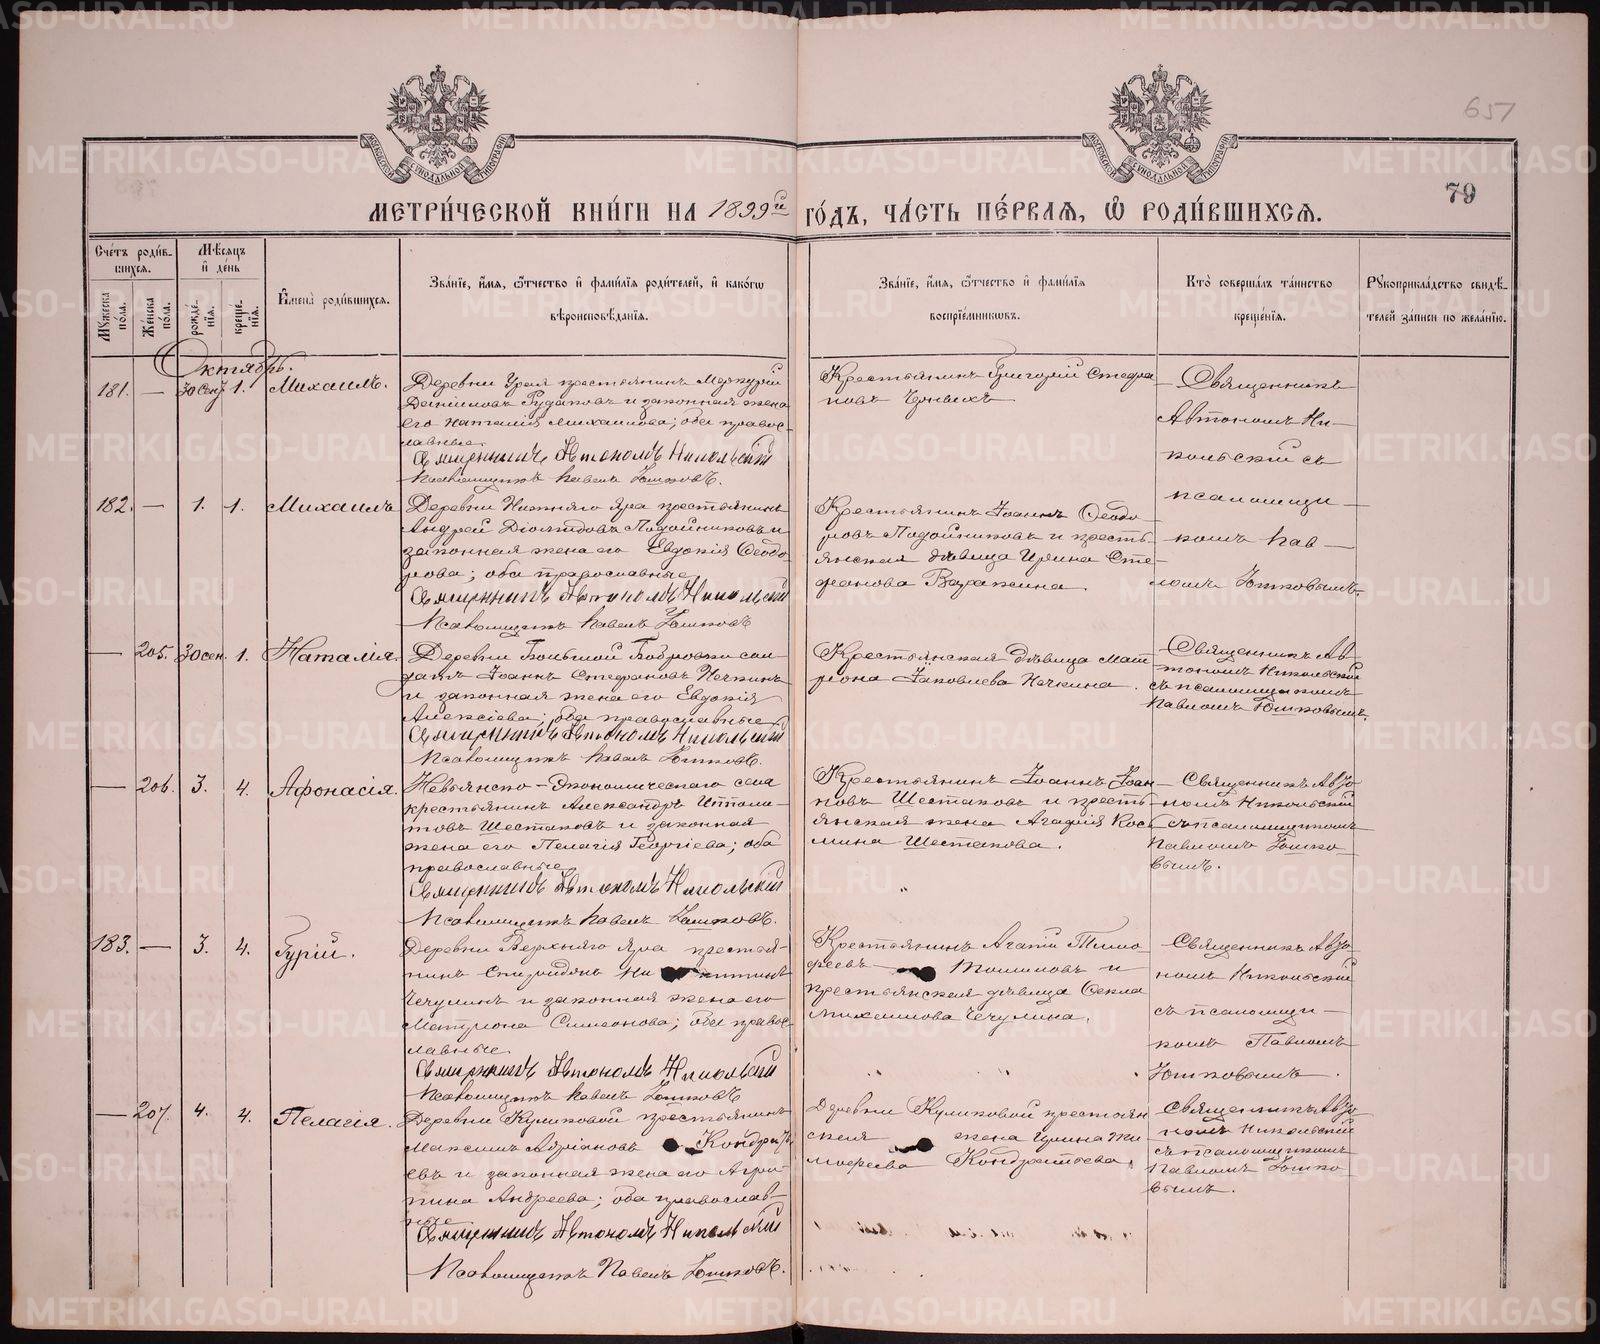 651
79
МЕТРИ́ЧЕСКОЙ КНИ́ГИ НА 1899й ГО́ДЪ, ЧА́СТЬ ПЕ́РВАЯ, Ѡ҆ РОДИ́ВШИХСЯ.
Сче́тъ роди́в-
шихся.
Мꙋ́жеска по́ла.
Же́нска по́ла.
Мѣ́сяцъ
и҆ де́нь
рожде́-нїя.
креще́-нїя.
И҆мена̀ роди́вшихся.
Зва́нїе, и҆́мя, ѻ҆́тчество и҆ фами́лїя роди́телей, и҆ како́гѡ
вѣроисповѣ́данїя.
Зва́нїе, и҆́мя, ѻ҆́тчество и҆ фами́лїя
воспрїе́мникѡвъ.
Кто̀ соверша́лъ та́инство
креще́нїя.
Рꙋкоприкла́дство свидѣ́-
телей за́писи по жела́нїю.
Октябрь.
181. — 30 Сен. 1. Михаилъ.
Деревни Урая крестьянинъ Меркурій
Даніиловъ Рудаковъ и законная жена
его Наталія Михаилова; оба правос-
лавные.
Священникъ Автономъ Никольскій
Псаломщикъ Павелъ Юшковъ.
Крестьянинъ Григорій Стефа-
новъ
Священникъ
Автономъ Ни-
кольскій съ
псаломщи-
комъ Пав-
ломъ Юшковымъ.
182. — 1. 1. Михаилъ
Деревни Нижняго Яра крестьянинъ
Андрей Діомидовъ Подойниковъ и
законная жена его Евдокія Ѳеодо-
рова; оба православные
Священникъ Автономъ Никольскій
Псаломщикъ Павелъ Юшковъ
Крестьянинъ Іоаннъ Ѳеодо-
ровъ Подойниковъ и кресть-
янская дѣвица Ирина Сте-
фанова
— 205. 30 сен. 1. Наталія.
Деревни Большой Бобровки сол-
датъ Іоаннъ Стефановъ Нечкинъ
и законная жена его Евдокія
Алексіева; оба православные
Священникъ Автономъ Никольскій
Псаломщикъ Павелъ Юшковъ.
Крестьянская дѣвица Мат-
рона Іаковлева Нечкина.
Священникъ Ав-
тономъ Никольскій
съ псаломщикомъ
Павломъ Юшковымъ.
— 206. 3. 4. Афонасія.
Невьянско-Экономическаго села
крестьянинъ Александръ Иппол-
товъ Шестаковъ и законная
жена его Пелагія Георгіева; оба
православные
Священникъ Автономъ Никольскій
Псаломщикъ Павелъ Юшковъ.
Крестьянинъ Іоаннъ Іоан-
новъ Шестаковъ и кресть-
янская жена Агафія Кось-
мина Шестакова.
Священникъ Авто-
номъ Никольскій
съ псаломщикомъ
Павломъ Юшко-
вымъ.
183. — 3. 4. Гурій.
Деревни Верхняго Яра крестья-
нинъ Спиридонъ
Чечулинъ и законная жена его
Матрона Симеонова; оба правос-
лавные.
Священникъ Автономъ Никольскій
Псаломщикъ Павелъ Юшковъ
Крестьянинъ Агапій Тимо-
феевъ Томиловъ и
крестьянская дѣвица Ѳекла
Михаилова Чечулина.
Священникъ Авто-
номъ Никольскій
съ псаломщи-
комъ Павломъ
Юшковымъ.
— 207. 4. 4. Пелагія.
Деревни Куликовой крестьянинъ
Максимъ Адріановъ Кондрать-
евъ и законная жена его Агрип-
пина Андреева; оба православ-
ные
Священникъ Автономъ Никольскій
Псаломщикъ Павелъ Юшковъ.
Деревни Куликовой крестьян-
ская жена Ирина Ти-
мофеева Кондратьева.
Священникъ Авто-
номъ Никольскій
съ псаломщикомъ
Павломъ Юшко-
вымъ.
METRIKI.GASO-URAL.RU